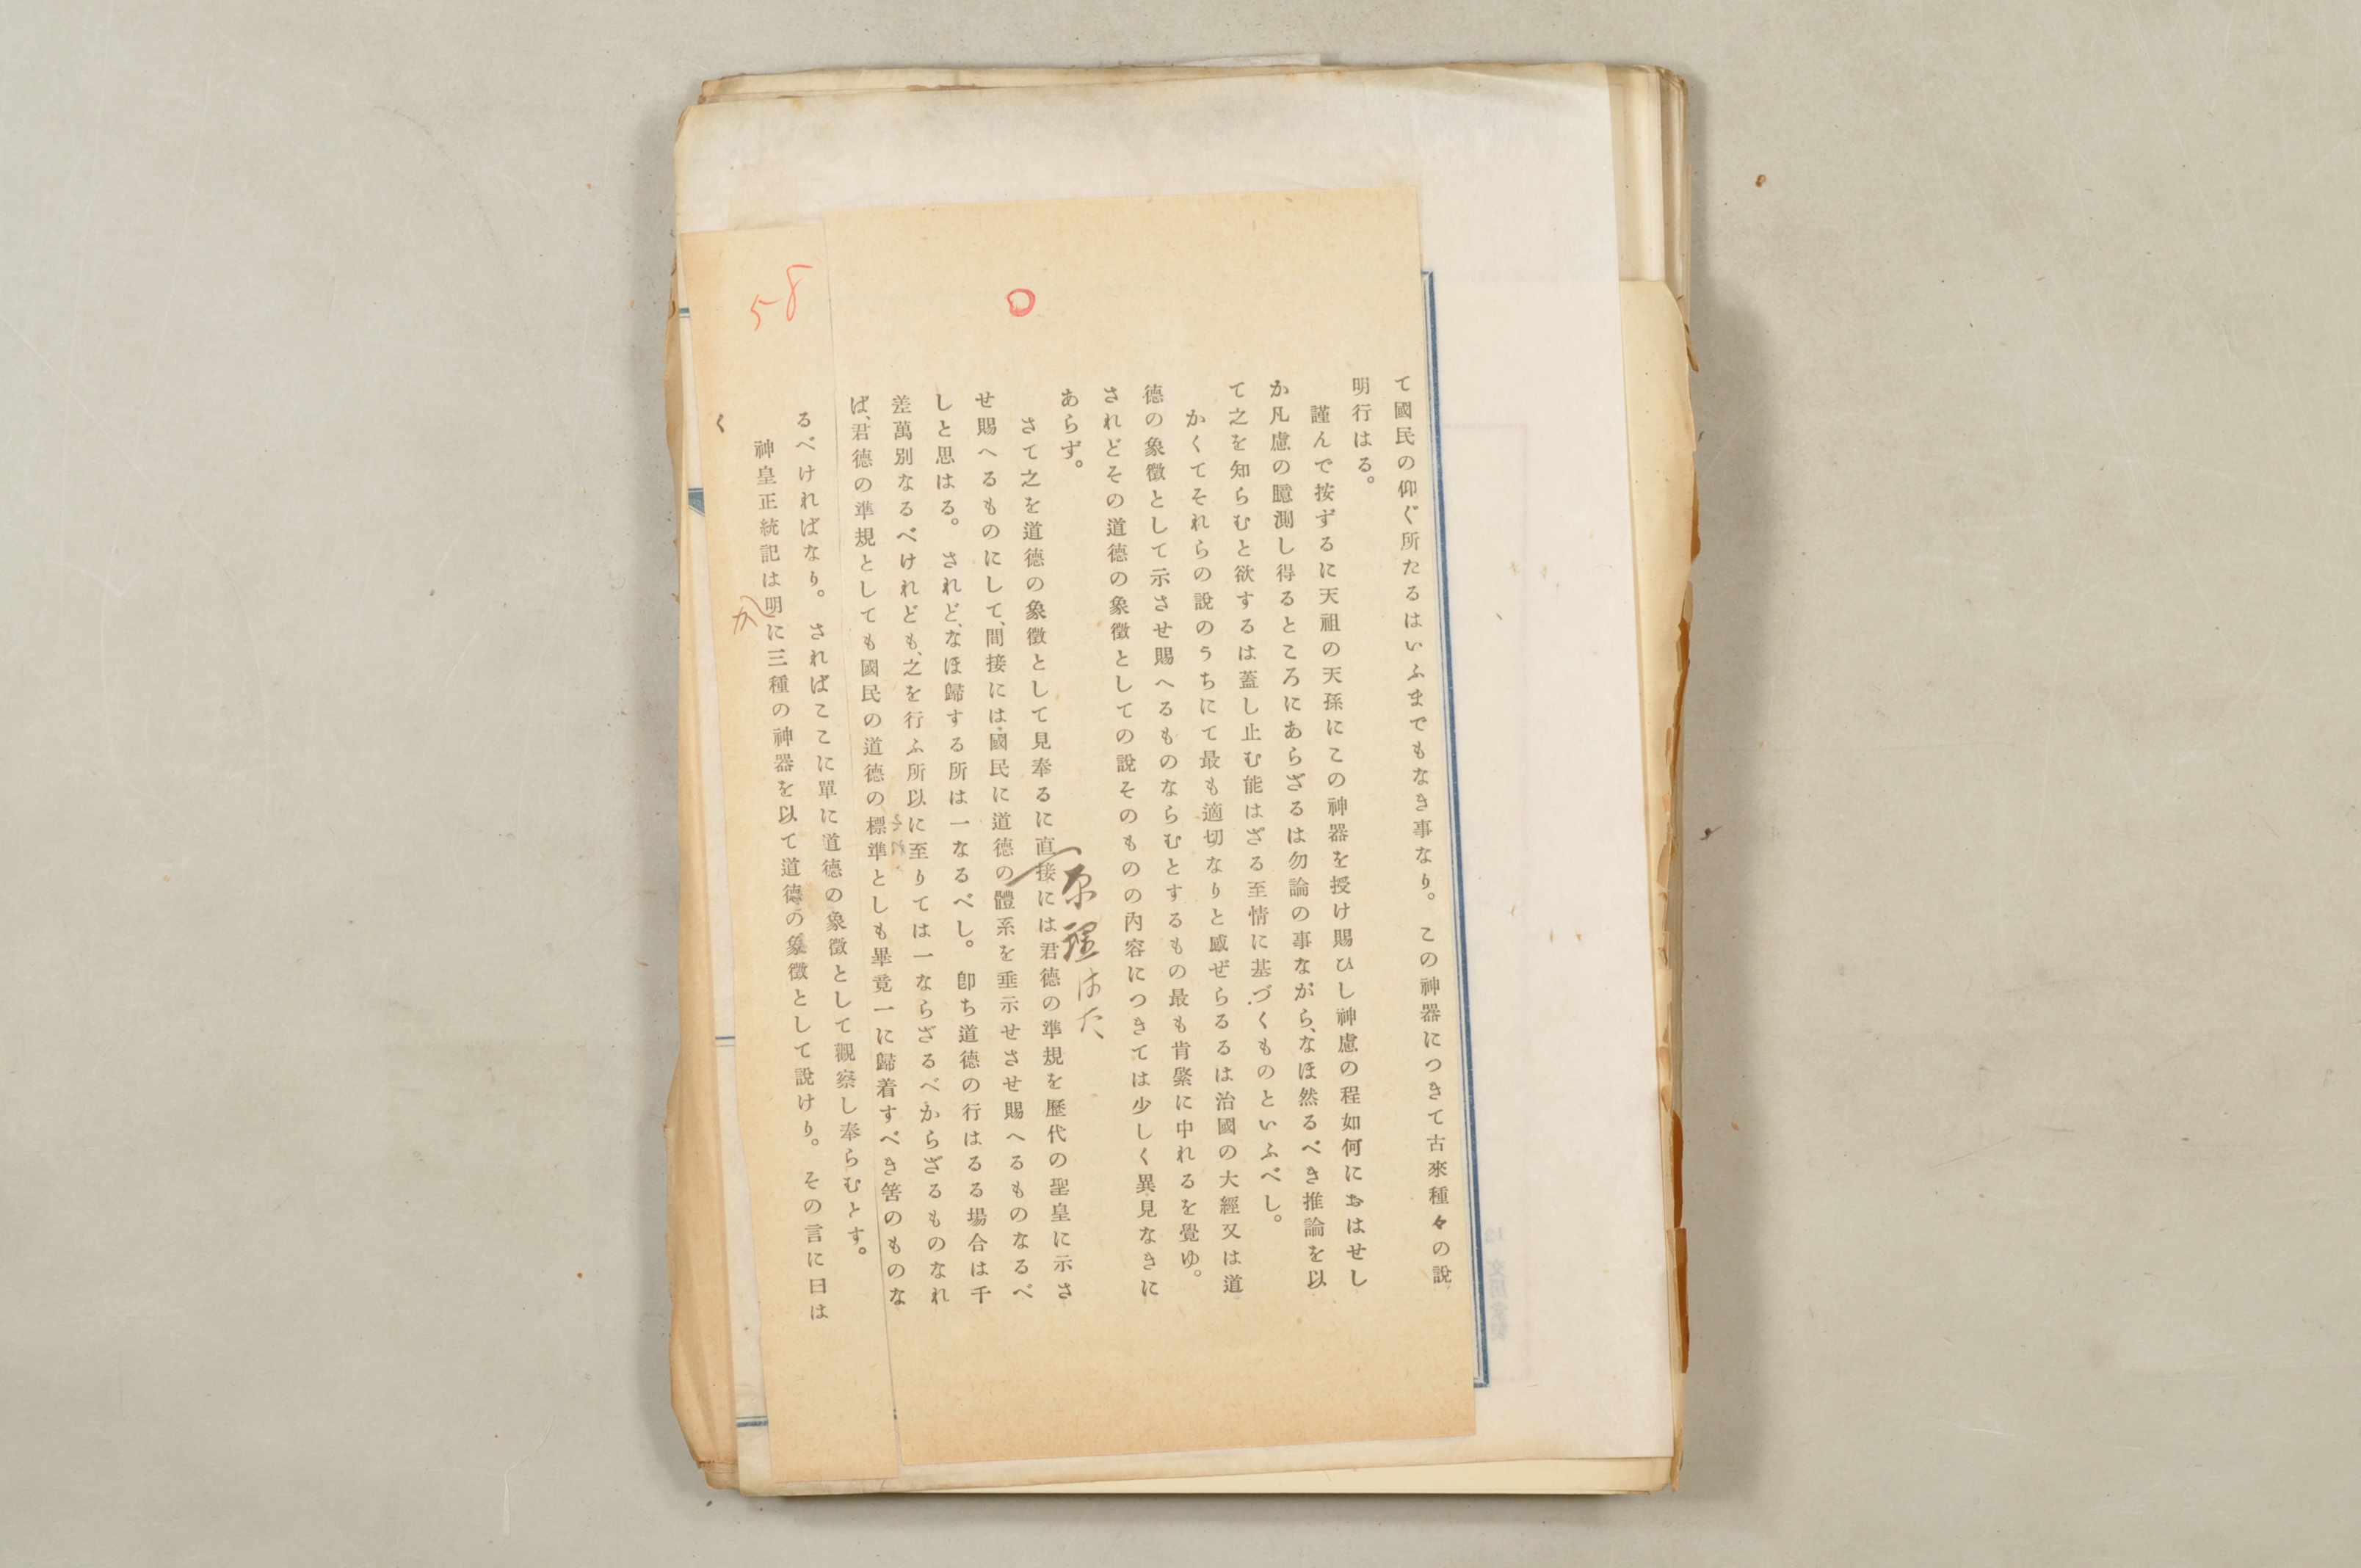 て國民の仰ぐ所たるはいふまでもなき事なり。この神器につきて古來種々の說
明行はる。
謹んで按ずるに天祖の天孫にこの神器を授け賜ひし神慮の程如何におはせし
か凡慮の臆測し得るところにあらざるは勿論の事ながら、なほ然るべき推論を以
て之を知らむと欲するは蓋し止む能はざる至情に基づくものといふべし。
かくてそれらの說のうちにて最も適切なりと感ぜらるるは治國の大經又は道
德の象徵として示させ賜へるものならむとするもの最も肯綮に中れるを覺ゆ。
されどその道德の象徵としての說そのものの內容につきては少しく異見なきに
あらず。
原理
さて之を道德の象徵として見奉るに直接には君德の準規を歷代の聖皇に示さ
せ賜へるものにして、間接には國民に道德の體系を垂示せさせ賜へるものなるべ
しと思はる。されど、なほ歸する所は一なるべし。卽ち道德の行はるる場合は千
差萬別なるべけれども、之を行ふ所以に至りては一ならざるべからざるものなれ
ば、君德の準規としても國民の道德の標準としも畢竟一に歸着すべき筈のものな
58
るべければなり。さればここに單に道德の象徵として觀察し奉らむとす。
神皇正統記は明に三種の神器を以て道德の象徵として說けり。その言に曰は
か
く